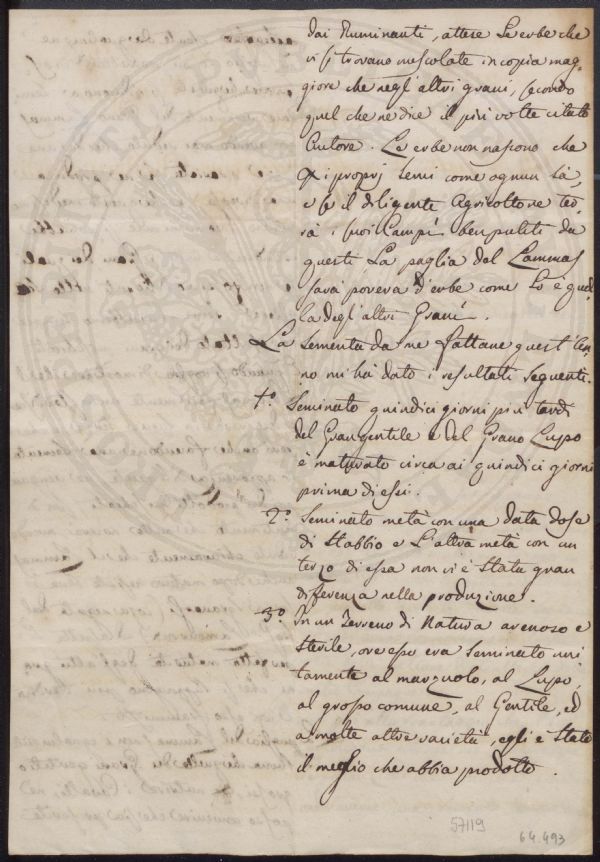 dai Ruminanti, attese le erbe che
vi si trovano mescolate in copia mag=
giore che negl'altri grani, secondo
quel che ne dice il più volte citato
Autore. Le erbe non nascono che
i proprj semi come ognun sà,
e se il diligente Agricoltore ter=
rà i suoi Campi ben puliti da
queste, La paglia del Lammas
sarà povera d'erbe come lo è quel=
la degl'altri Grani.
La Sementa da me fattane quest'An=
no mi hà dato i resultati seguenti.
1.° Seminato quindici giorni più tardi
del Gran gentile e del Grano Lupo
è maturato circa ai quindici giorni
prima di essi.
2.° Seminato metà con una data dose
di Stabbio e L'altra metà con un
terzo di essa non vi è Stata gran
differenza nella produzione.
3.° In un Terreno di Natura arenoso e
Sterile, ove esso era Seminato uni=
tamente al marzuolo, al Lupo,
al grosso comune, al Gentile, ed
a molte altre varietà, egli è Stato
il meglio che abbia prodotto.
57119
64.493